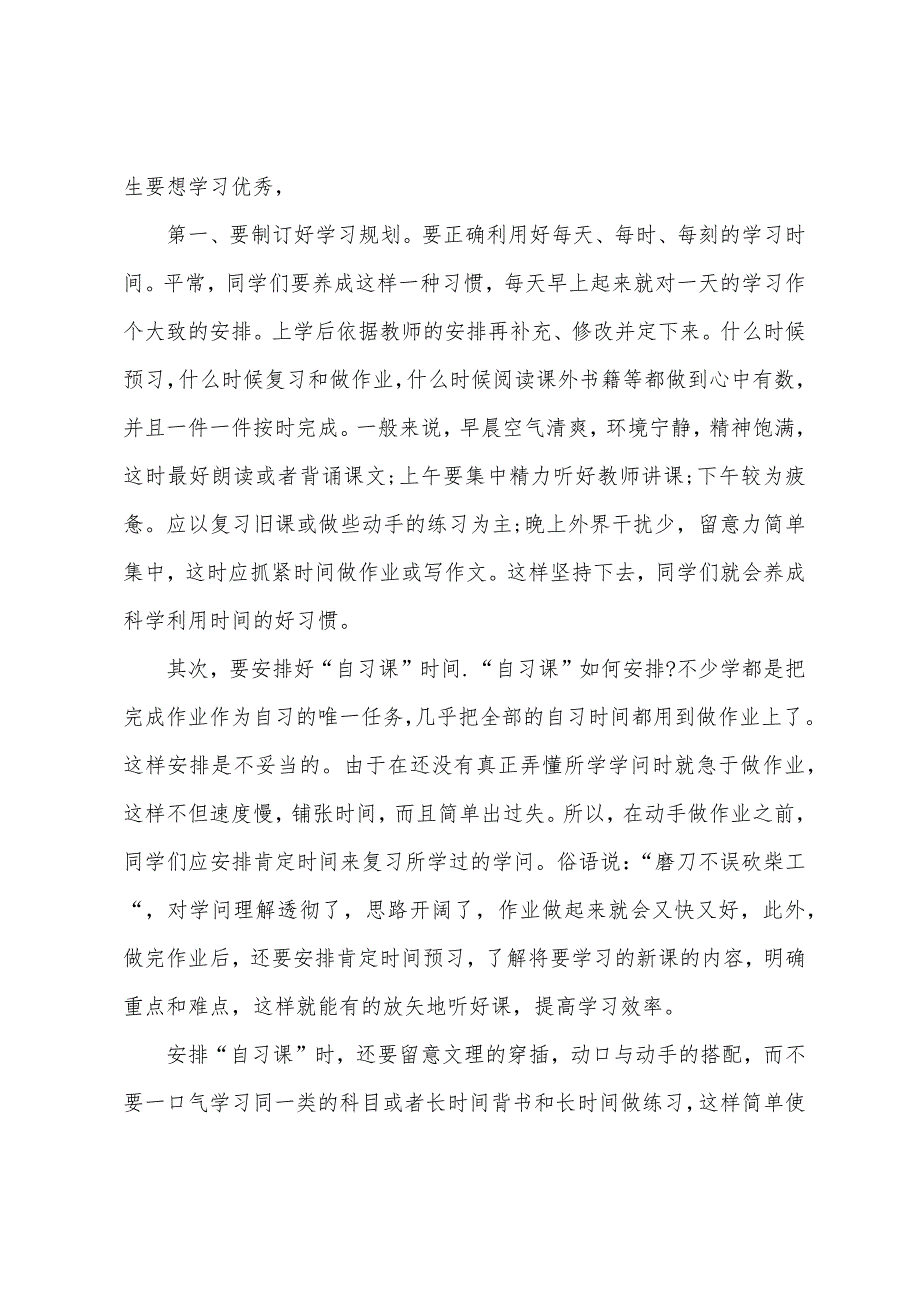 生要想学习优秀，
第一、要制订好学习规划。要正确利用好每天、每时、每刻的学习时
间。平常，同学们要养成这样一种习惯，每天早上起来就对一天的学习作
个大致的安排。上学后依据教师的安排再补充、修改并定下来。什么时候
预习，什么时候复习和做作业，什么时候阅读课外书籍等都做到心中有数，
并且一件一件按时完成。一般来说，早晨空气清爽，环境宁静，精神饱满，
这时最好朗读或者背诵课文;上午要集中精力听好教师讲课;下午较为疲
惫。应以复习旧课或做些动手的练习为主;晚上外界干扰少，留意力简单
集中，这时应抓紧时间做作业或写作文。这样坚持下去，同学们就会养成
科学利用时间的好习惯。
其次，要安排好“自习课”时间.“自习课”如何安排?不少学都是把
完成作业作为自习的唯一任务，几乎把全部的自习时间都用到做作业上了。
这样安排是不妥当的。由于在还没有真正弄懂所学学问时就急于做作业，
这样不但速度慢，铺张时间，而且简单出过失。所以，在动手做作业之前，
同学们应安排肯定时间来复习所学过的学问。俗语说：“磨刀不误砍柴工
“，对学问理解透彻了，思路开阔了，作业做起来就会又快又好，此外，
做完作业后，还要安排肯定时间预习，了解将要学习的新课的内容，明确
重点和难点，这样就能有的放矢地听好课，提高学习效率。
安排“自习课”时，还要留意文理的穿插，动口与动手的搭配，而不
要一口气学习同一类的科目或者长时间背书和长时间做练习，这样简单使